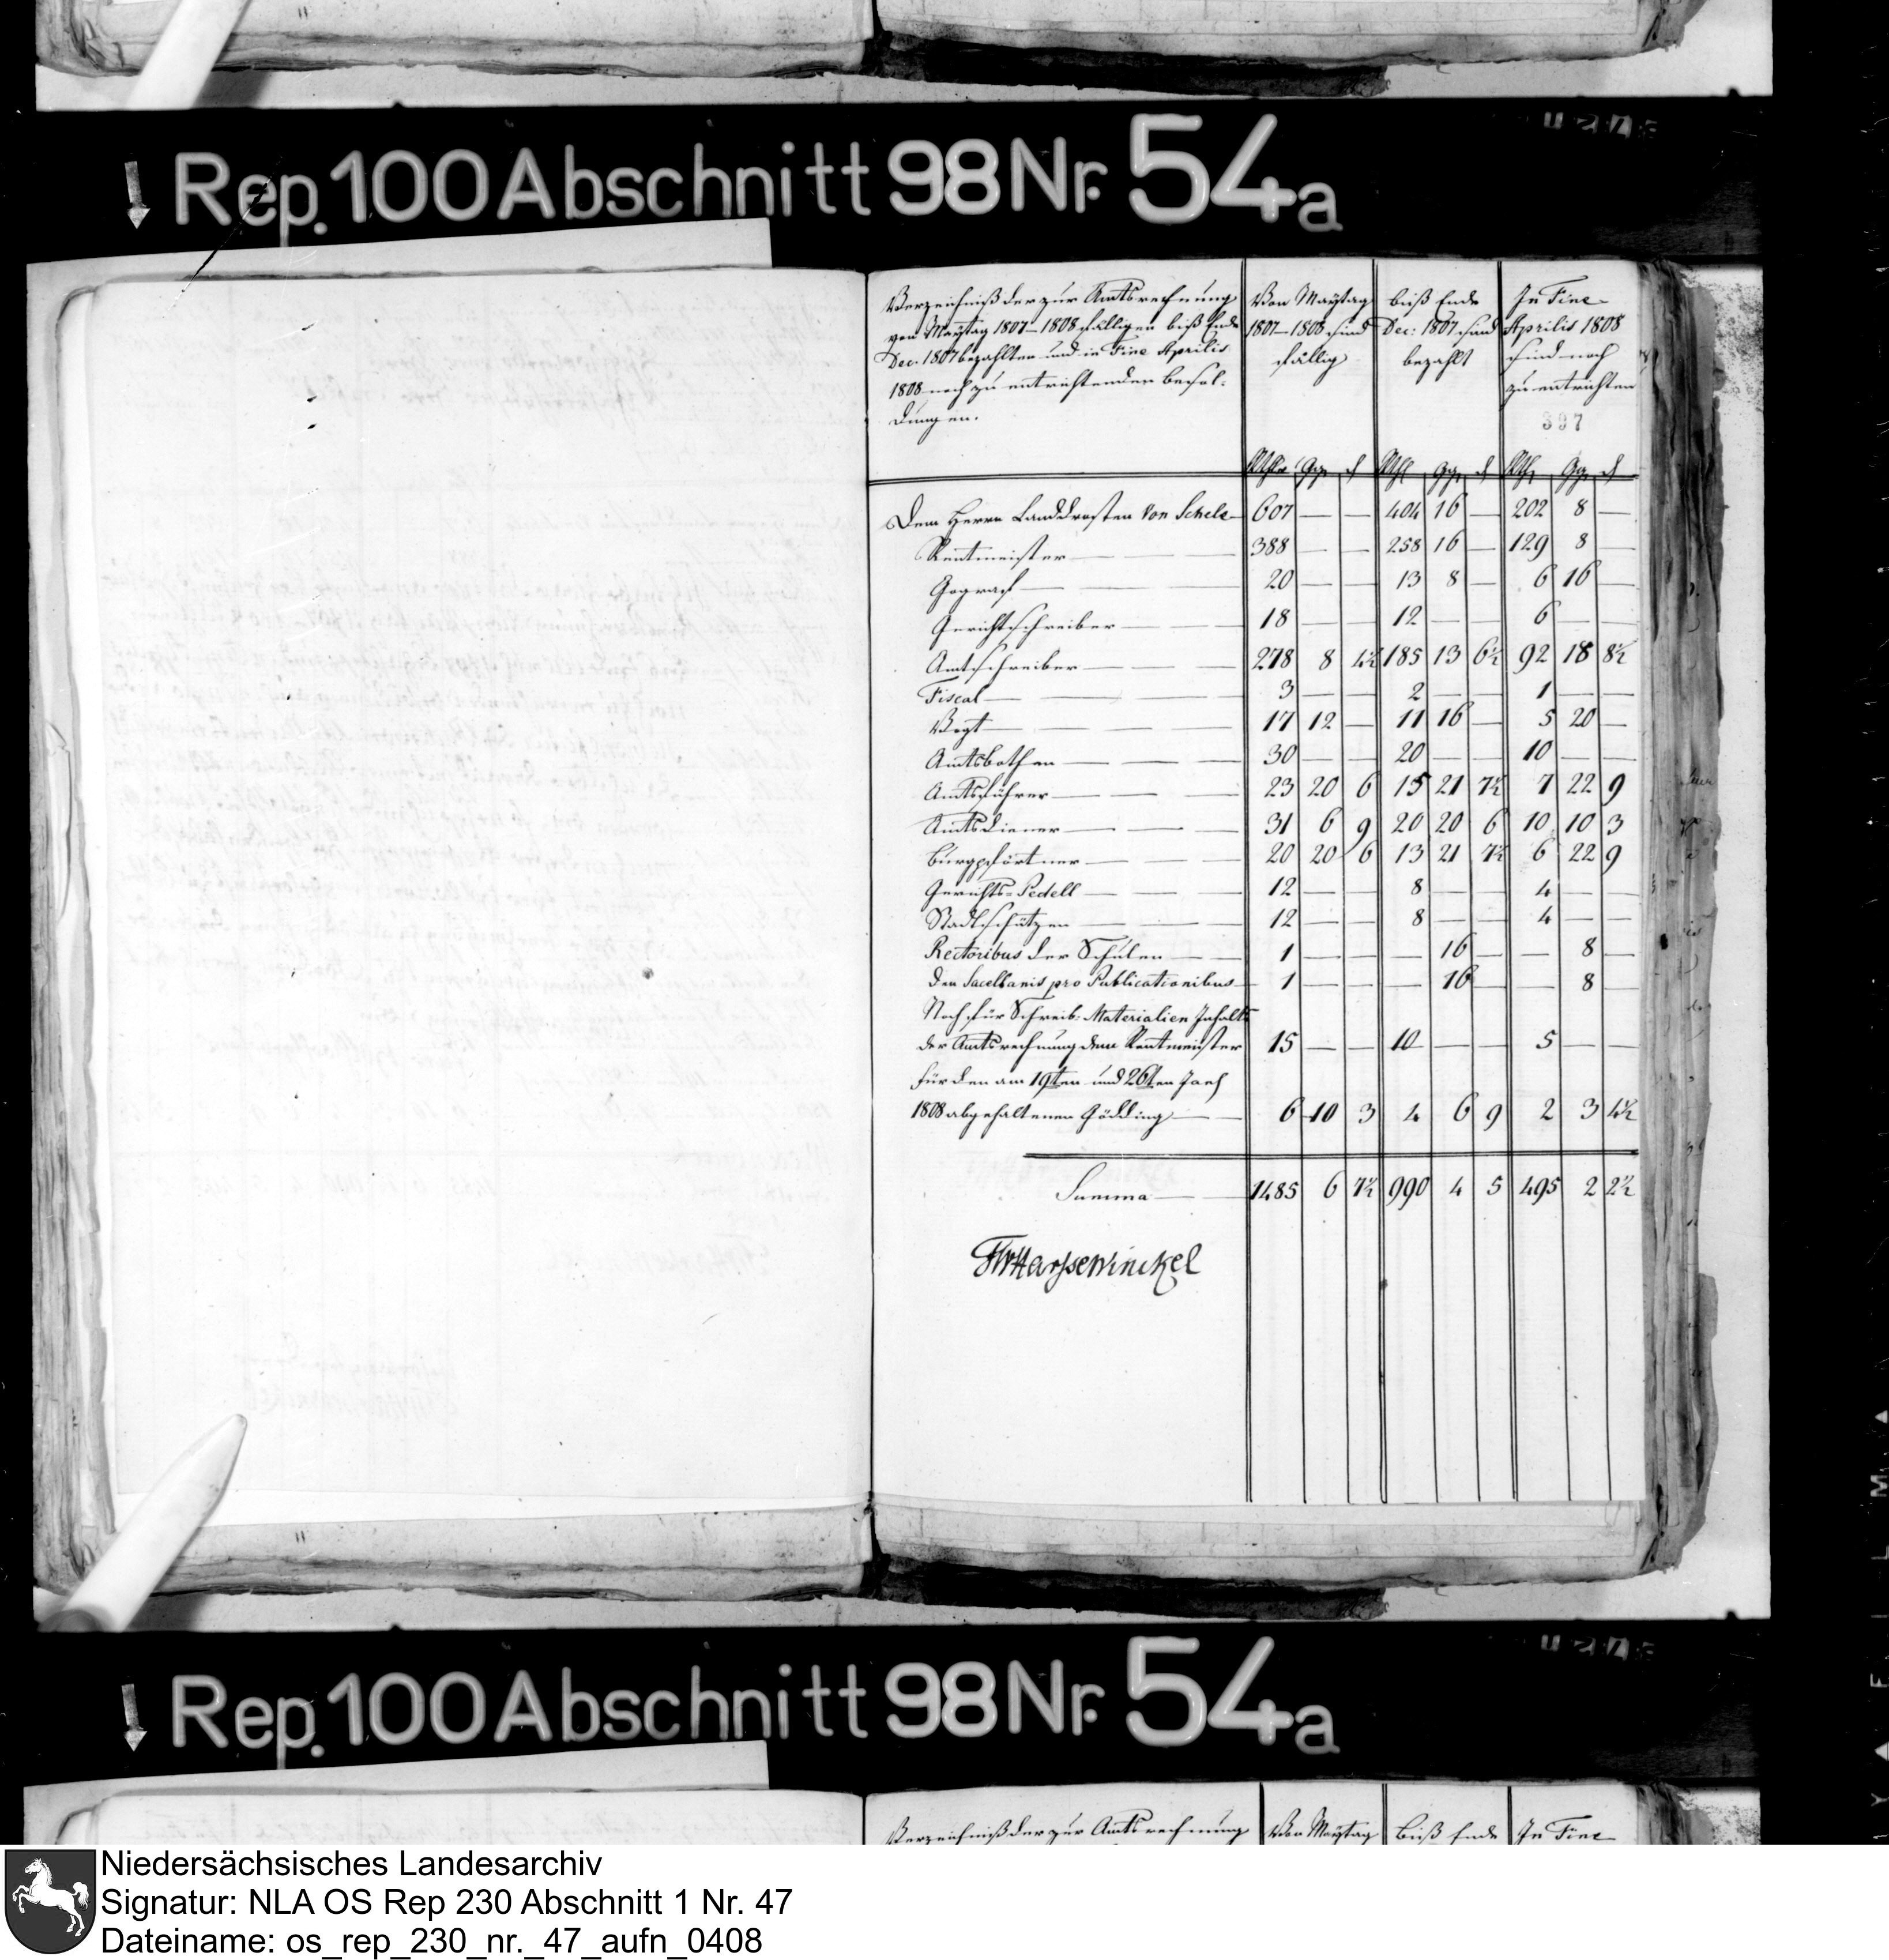 Rep. 100 Abschnitt 98 Nr. 54a
Verzeichniß der zur Amtsrechnung
von Maÿtag 1807–1808 fälligen biß Ende
Dec: 1807 bezahlten und in Fine Aprilis
1808 noch zu entrichtenden besol-
dungen.
Von Maÿtag
1807–1808 sind
fällig
biß Ende
Dec: 1807 sind
bezahlt
In Fine
Aprilis 1808
sind noch
zu entrichten
397
Rthlr Gg d Rthl Gg d Rthl Gg d
Dem Herrn Landdrosten von Schele 607 — — 404 16 — 202 8 —
Rentmeister 388 — — 258 16 — 129 8 —
Gograf 20 — — 13 8 — 6 16 —
Gerichtschreiber 18 — — 12 — — 6 — —
Amtschreiber 278 8 4½ 185 13 6½ 92 18 8½
Fiscal 3 — — 2 — — 1 — —
Vogt 17 12 — 11 16 — 5 20 —
Amtsbothen 30 — — 20 — — 10 — —
Amtsführer 23 20 6 15 21 7½ 7 22 9
Amtsdiener 31 6 9 20 20 6 10 10 3
burgpförtner 20 20 6 13 21 7½ 6 22 9
Gerichts-Pedell 12 — — 8 — — 4 — —
Stadtschützen 12 — — 8 — — 4 — —
Rectoribus der Schulen 1 — — — 16 — — 8 —
den Sacellanis pro Publicationibus 1 — — — 16 — — 8 —
Noch für Schreib-Materialien Inhalts
der Amtsrechnung dem Rentmeister 15 — — 10 — — 5 — —
für den am 19ten und 26ten
1808 abgehaltenen Gödding 6 10 3 4 6 9 2 3 4½
Summa 1485 6 7½ 990 4 5 495 2 2½
Harsewinckel
Rep. 100 Abschnitt 98 Nr. 54a
Verzeichniß der zur Amtsrechnung
Von Maÿtag
biß Ende
In Fine
Niedersächsisches Landesarchiv
Signatur: NLA OS Rep 230 Abschnitt 1 Nr. 47
Dateiname: os_rep_230_nr._47_aufn_0408